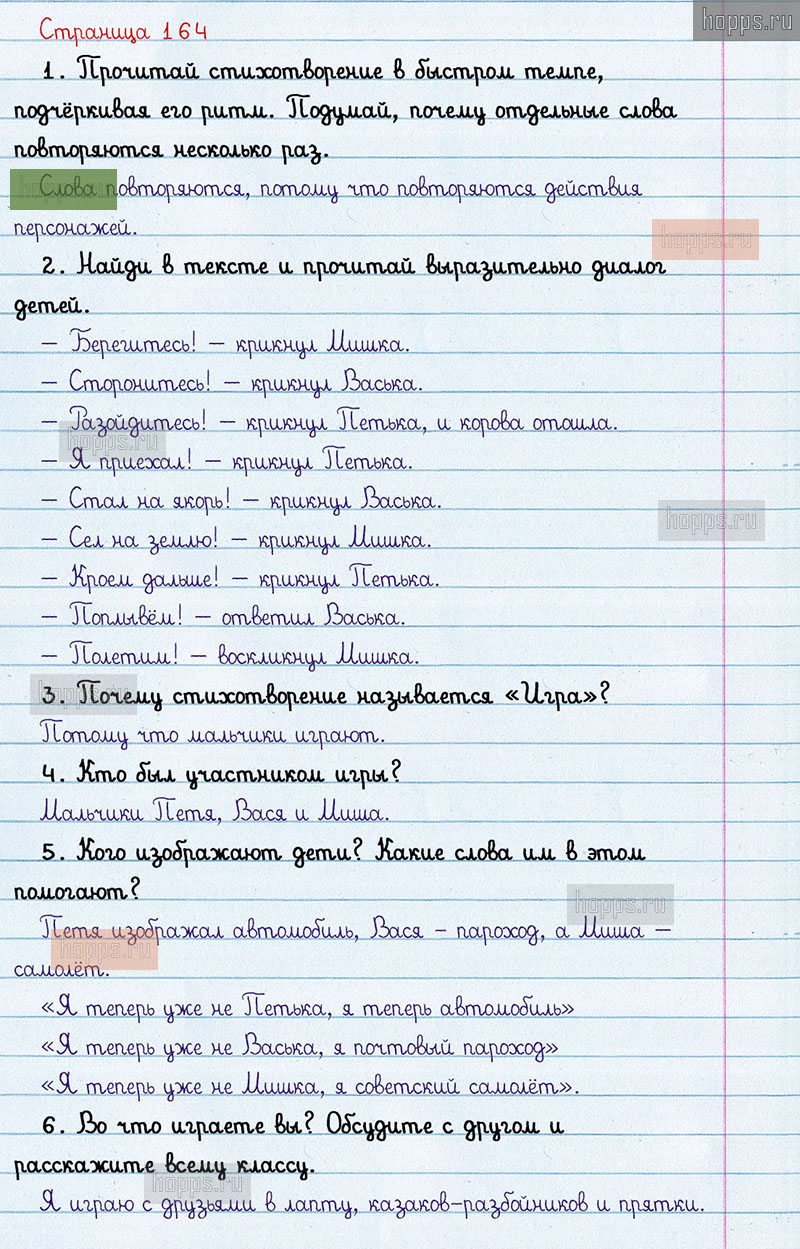 hopps.ru
Страница 164
1. Прочитай стихотворение в быстром темпе,
подчёркивая его ритм. Подумай, почему отдельные слова
повторяются несколько раз.
Слова повторяются, потому что повторяются действия
персонажей.
hopps.ru
2. Найди в тексте и прочитай выразительно диалог
детей.
– Берегитесь! – крикнул Мишка.
– Сторонитесь! – крикнул Васька.
– Разойдитесь! – крикнул Петька, и корова отошла.
hopps.ru
– Я приехал! – крикнул Петька.
– Стал на якорь! – крикнул Васька.
hopps.ru
– Сел на землю! – крикнул Мишка.
– Кроем дальше! – крикнул Петька.
– Поплывём! – ответил Васька.
– Полетим! – воскликнул Мишка.
hopps.ru
3. Почему стихотворение называется «Игра»?
Потому что мальчики играют.
4. Кто был участником игры?
Мальчики Петя, Вася и Миша.
5. Кого изображают дети? Какие слова им в этом
помогают?
hopps.ru
Петя изображал автомобиль, Вася – пароход, а Миша –
hopps.ru
самолёт.
«Я теперь уже не Петька, я теперь автомобиль»
«Я теперь уже не Васька, я почтовый пароход»
«Я теперь уже не Мишка, я советский самолёт».
6. Во что играете вы? Обсудите с другом и
расскажите всему классу.
hopps.ru
Я играю с друзьями в лапту, казаков-разбойников и прятки.